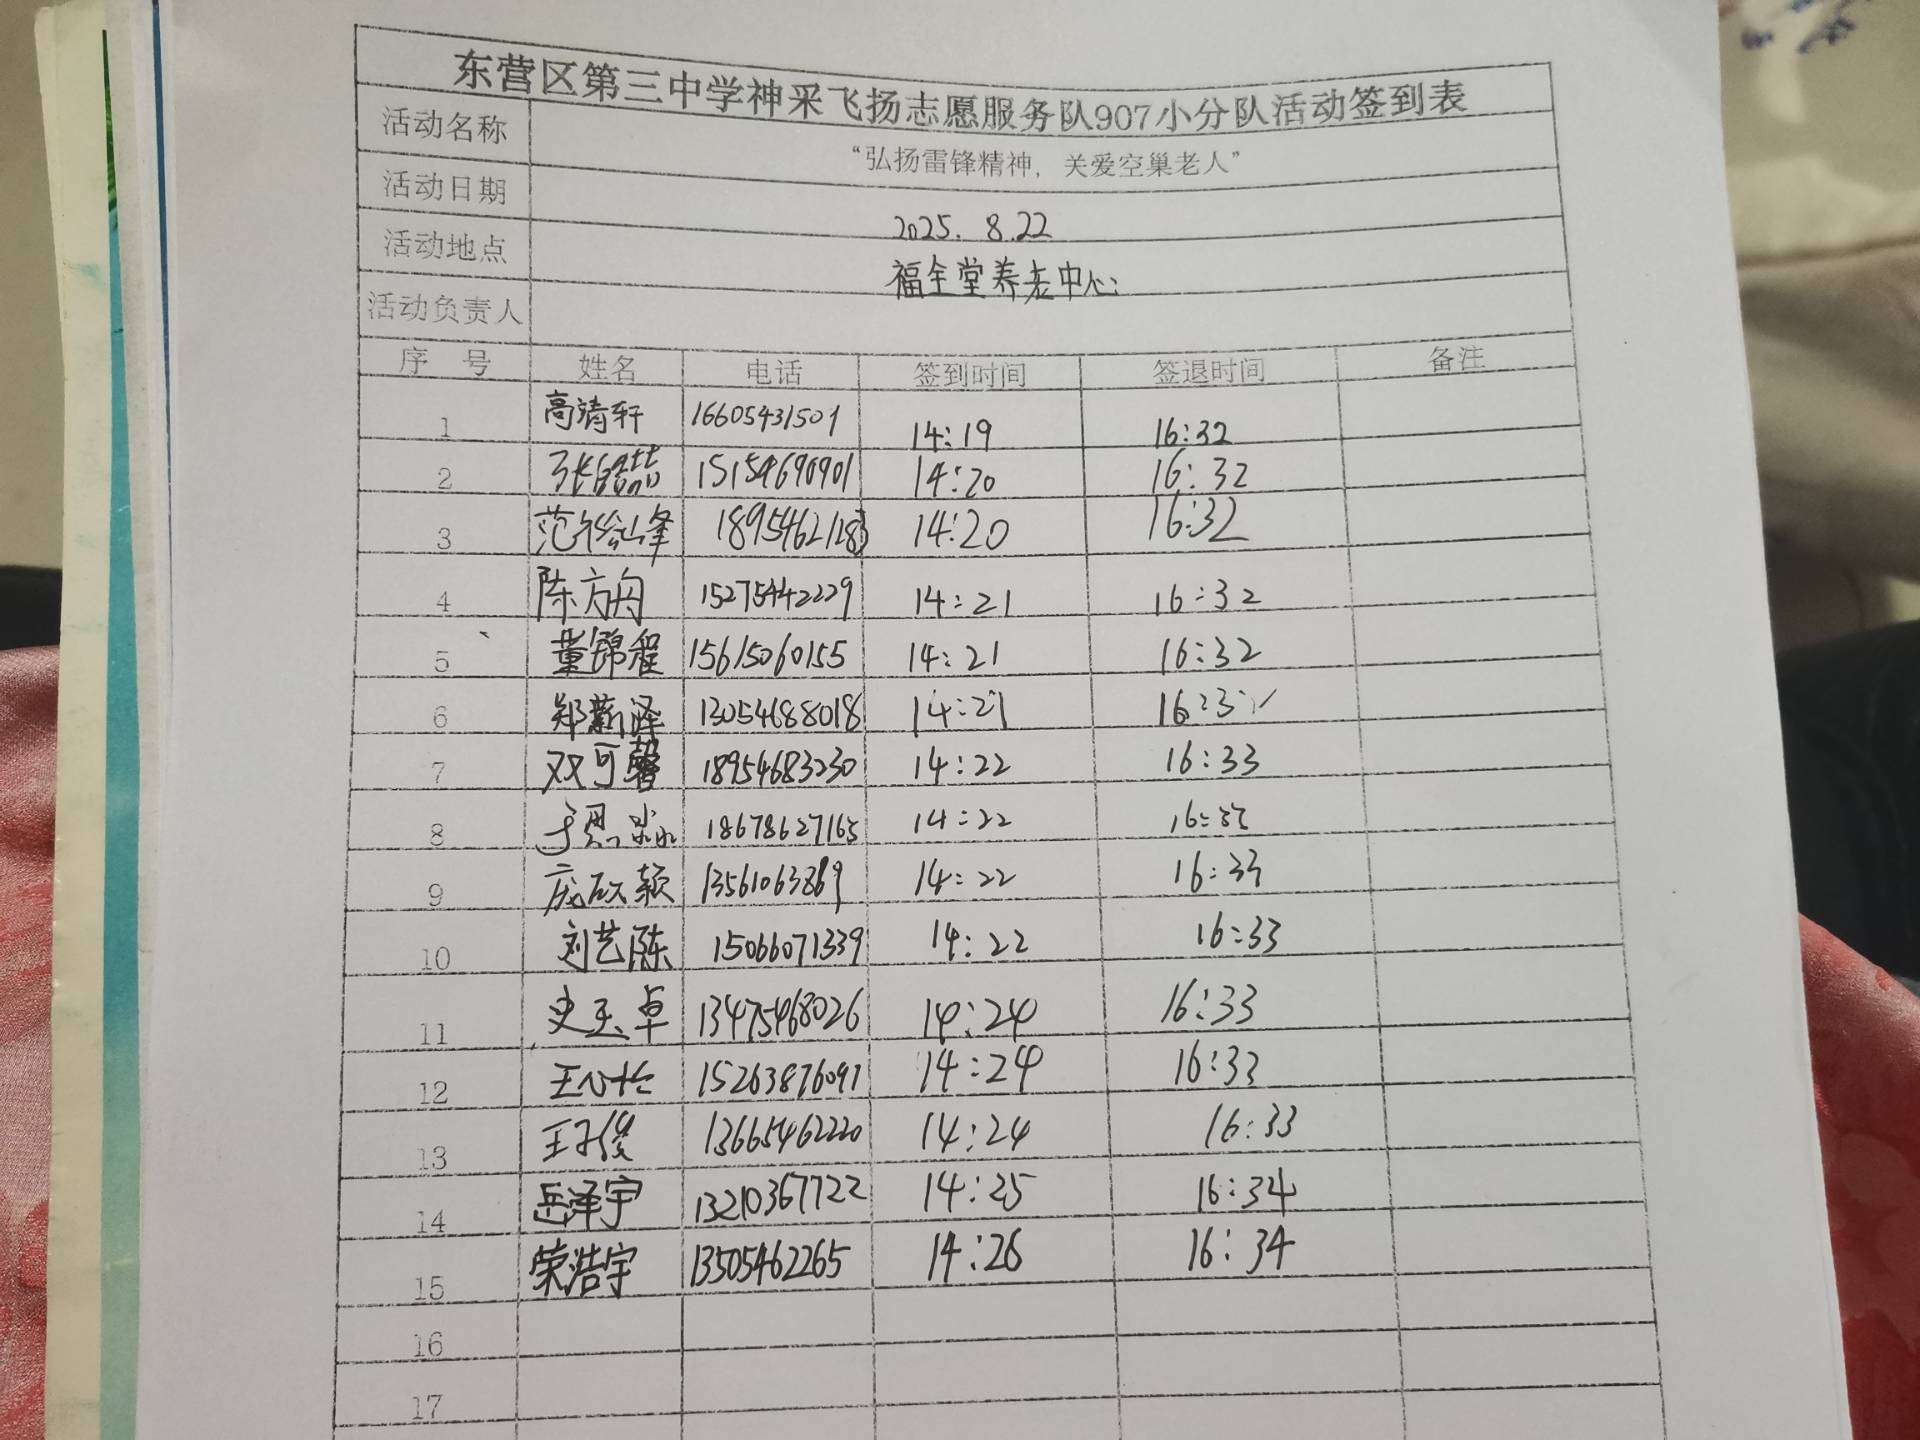 东营区第三中学神采飞扬志愿服务队907小分队活动签到表
活动名称 “弘扬雷锋精神，关爱空巢老人”
活动日期 2025.8.22
活动地点 福全堂养老中心
活动负责人
序 号 姓名 电话 签到时间 签退时间 备注
1 高靖轩 16605431501 14:19 16:32
2 张皓喆 15154690901 14:20 16:32
3 14:20 16:32
4 陈方舟 15275442229 14:21 16:32
5 董锦程 15615060155 14:21 16:32
6 郑新泽 13054688018 14:21 16:32
7 双可馨 18954683230 14:22 16:33
8 于思淼 18678627165 14:22 16:33
9 13561063869 14:22 16:33
10 刘艺陈 15066071339 14:22 16:33
11 史玉卓 13475468026 14:24 16:33
12 15263876091 14:24 16:33
13 王子俊 13665462220 14:24 16:33
14 岳泽宇 13210367722 14:25 16:34
15 荣浩宇 13505462265 14:26 16:34
16
17